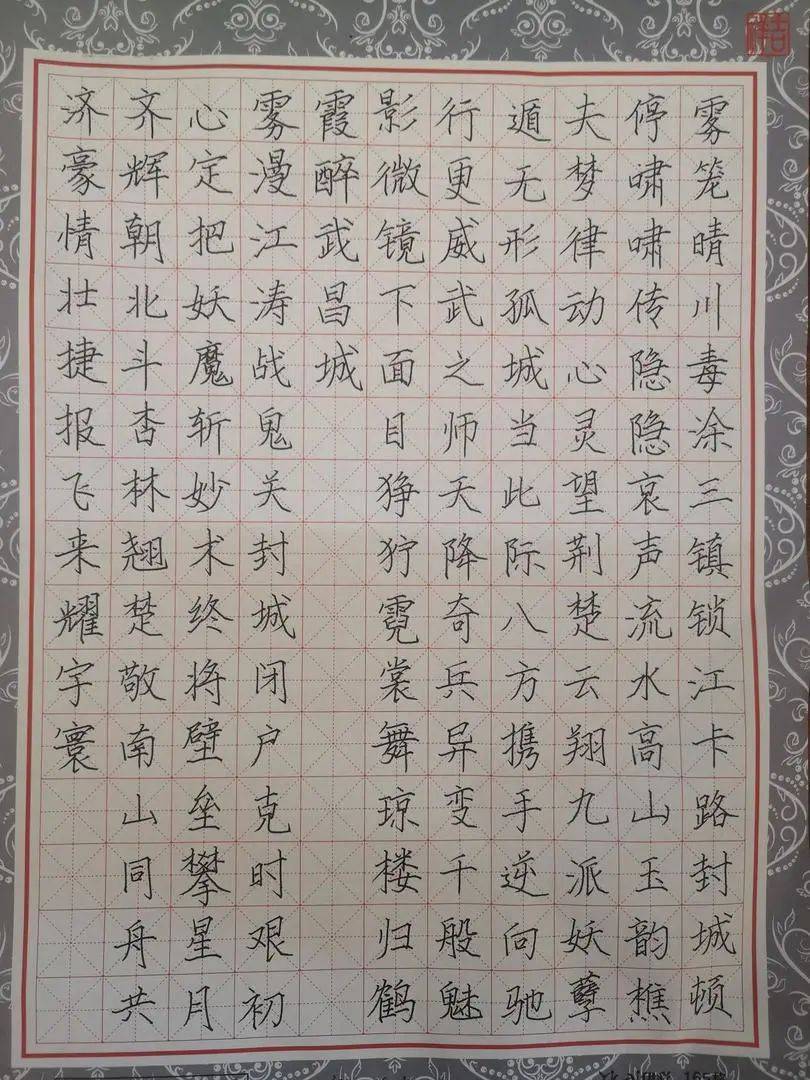 雾笼晴川毒涂三镇锁江卡路封城顿
停啸啸传隐隐哀声流水高山玉韵樵
夫梦律动心灵望荆楚云翔九派妖孽
遁无形孤城当此际八方携手逆向驰
行更威武之师天降奇兵异变千般魅
影微镜下面目狰狞霓裳舞琼楼归鹤
霞醉武昌城
雾漫江涛战鬼关封城闭户克时艰初
心定把妖魔斩妙术终将壁垒攀星月
齐辉朝北斗杏林翘楚敬南山同舟共
济豪情壮捷报飞来耀宇寰